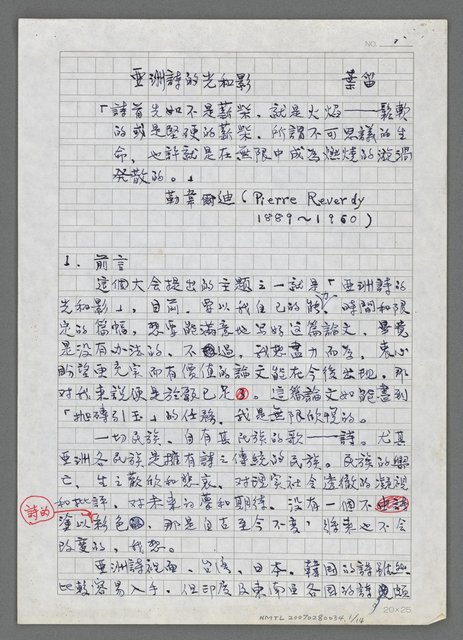 NO. 1
亞洲詩的光和影 葉笛
「詩首先如不是薪柴,就是火焰——鬆軟
的或是堅硬的薪柴。所謂不可思議的生
命,也許就是在無限中成為燃燒的漩渦
發散的。」
勒韋爾迪(Pierre Reverdy
1889~1960)
1. 前言
這個大會提出的主題之一就是「亞洲詩的
光和影」,目前,要以我自己的能力,時間和限
定的篇幅,想要能滿意地寫好這篇論文,畢竟
是沒有办法的。不過,我想盡力而為,衷心
盼望更充實而有價值的論文能在今後出現。那
對我來說便是於願已足了。這篇論文如能盡到
「拋磚引玉」的任務,我是無限欣悅的。
一切民族,自有其民族的歌——詩。尤其
亞洲各民族是擁有詩之傳統的民族。民族的興
亡,生之歡欣和悲哀,對現實社會透徹的凝視
和批評,對未來的夢和期待,沒有一個不
詩的
塗以彩色,那是自古至今不變,將來也不會
改變的,我想。
亞洲詩視角,台灣、日本、韓國的詩雖然
比較容易入手,但印度及東南亞各國的詩頗
20×25
NMTL 20070280034, 1/14